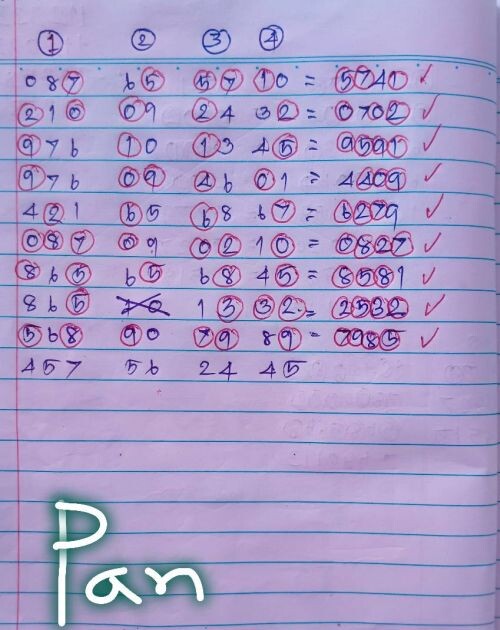 1 2 3 4
087 65 57 10 = 5741 ✓
210 09 24 32 = 0702 ✓
976 10 13 45 = 9591 ✓
976 09 46 01 = 4409 ✓
421 65 68 67 = 6279 ✓
087 09 02 10 = 0827 ✓
865 65 68 45 = 8581 ✓
865 13 32 = 2532 ✓
568 90 79 89 = 7985 ✓
457 56 24 45
Pan